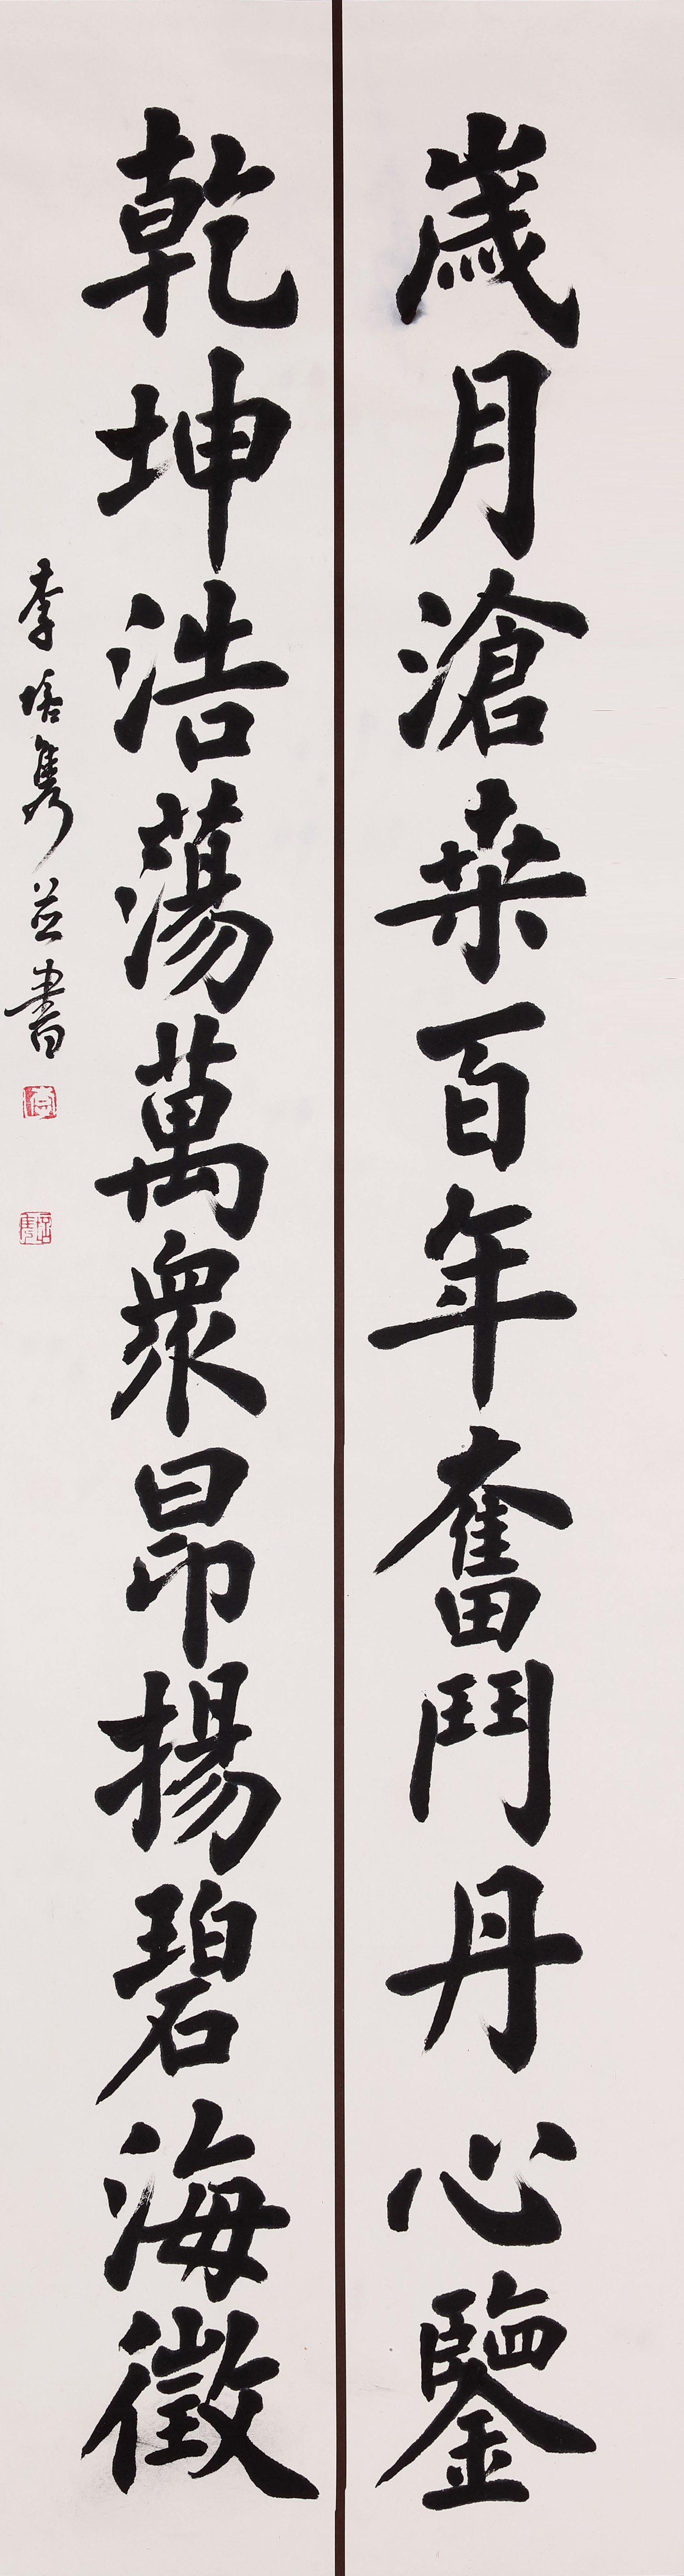 歲月滄桒百年奮鬥丹心鑒
乾坤浩蕩萬衆昂揚碧海徵
李培隽並書